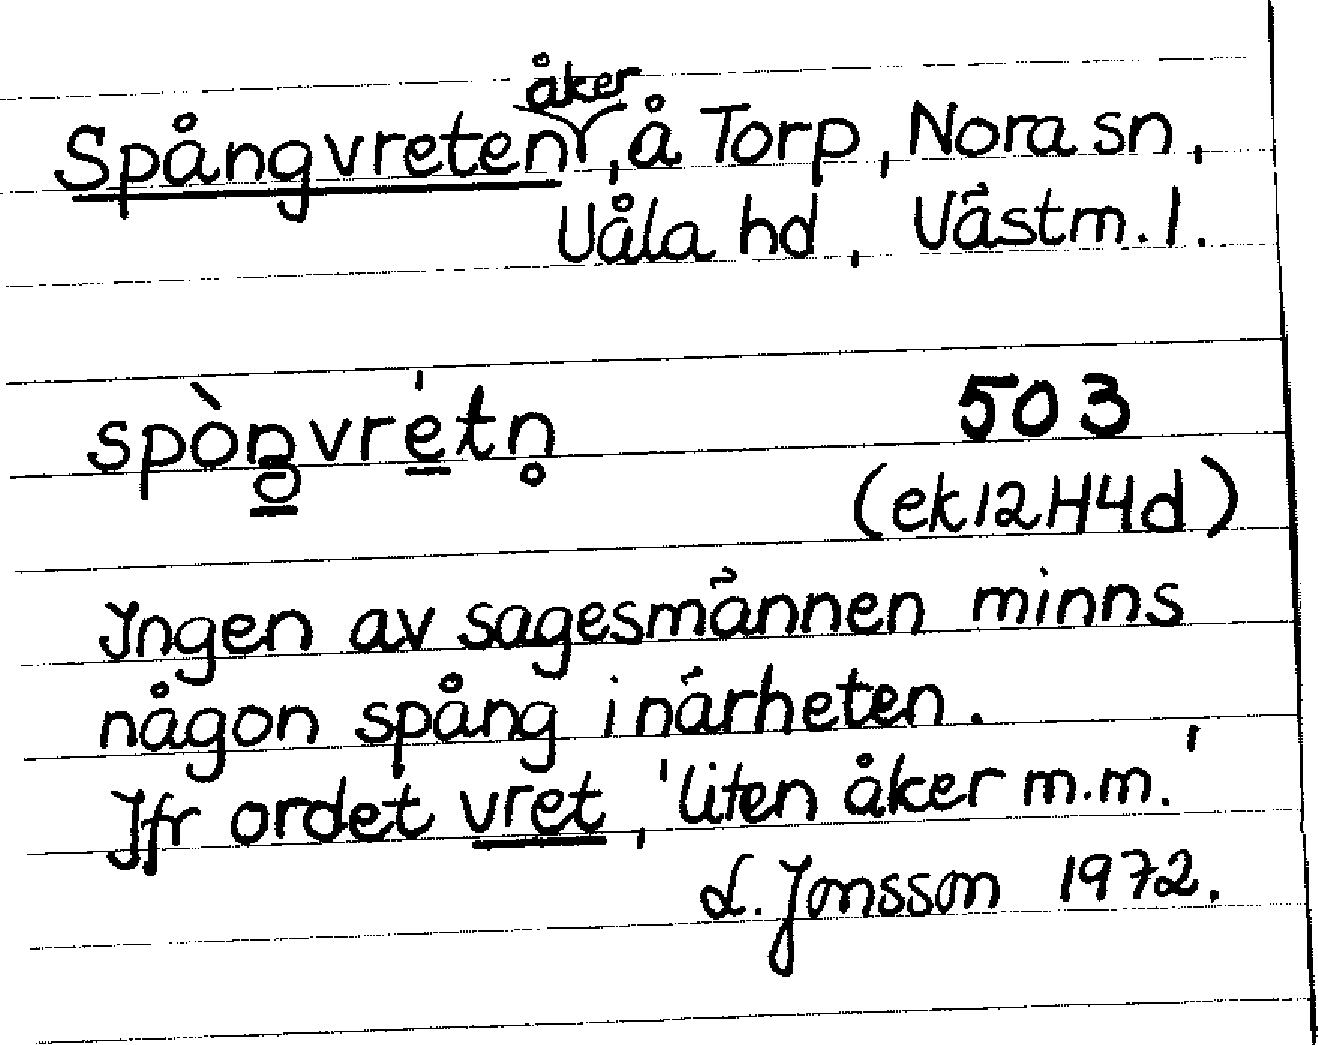 Spångvreten åker, å Torp, Nora sn,
Våla hd, Västm. l.
503
(ek12H4d)
Ingen av sagesmännen minns
någon spång i närheten.
Jfr ordet vret, 'liten åker m.m.'
L. Jonsson 1972.